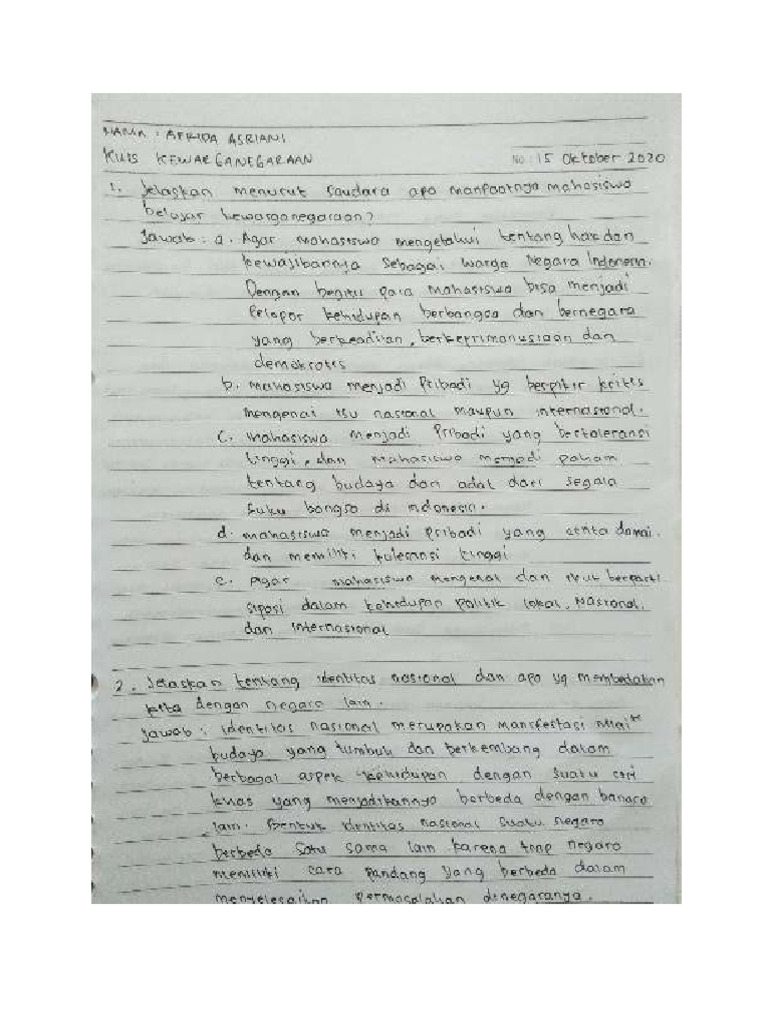 NAMA : AFRIDA ASRIANI
KUIS KEWARGANEGARAAN NO : 15 Oktober 2020
1. Jelaskan menurut saudara apa manfaatnya mahasiswa
belajar kewarganegaraan?
Jawab : a. Agar mahasiswa mengetahui tentang hak dan
kewajibannya sebagai warga Negara Indonesia.
Dengan begitu para mahasiswa bisa menjadi
Pelapor kehidupan berbangsa dan bernegara
yang berkeadilan, berkeprimanusiaan dan
demokratis
b. mahasiswa menjadi Pribadi yg berpikir kritis
mengenai isu nasional maupun internasional.
c. mahasiswa menjadi Pribadi yang bertoleransi
tinggi, dan mahasiswa menjadi paham
tentang budaya dan adat dari segala
suku bangsa di indonesia.
d. mahasiswa menjadi pribadi yang cinta damai.
dan memiliki toleransi tinggi
e. Agar mahasiswa mengenal dan ikut berparti
sipasi dalam kehidupan politik lokal, Nasional,
dan internasional
2. Jelaskan tentang identitas nasional dan apa yg membedakan
kita dengan negara lain.
Jawab : identitas nasional merupakan manifestasi nilai²
budaya yang tumbuh dan berkembang dalam
berbagai aspek kehidupan dengan suatu ciri
khas yang menjadikannya berbeda dengan
lain. Bentuk identitas nasional suatu negara
berbeda satu sama lain karena tiap negara
memiliki cara pandang yang berbeda dalam
menyelesaikan permasalahan dinegaranya.